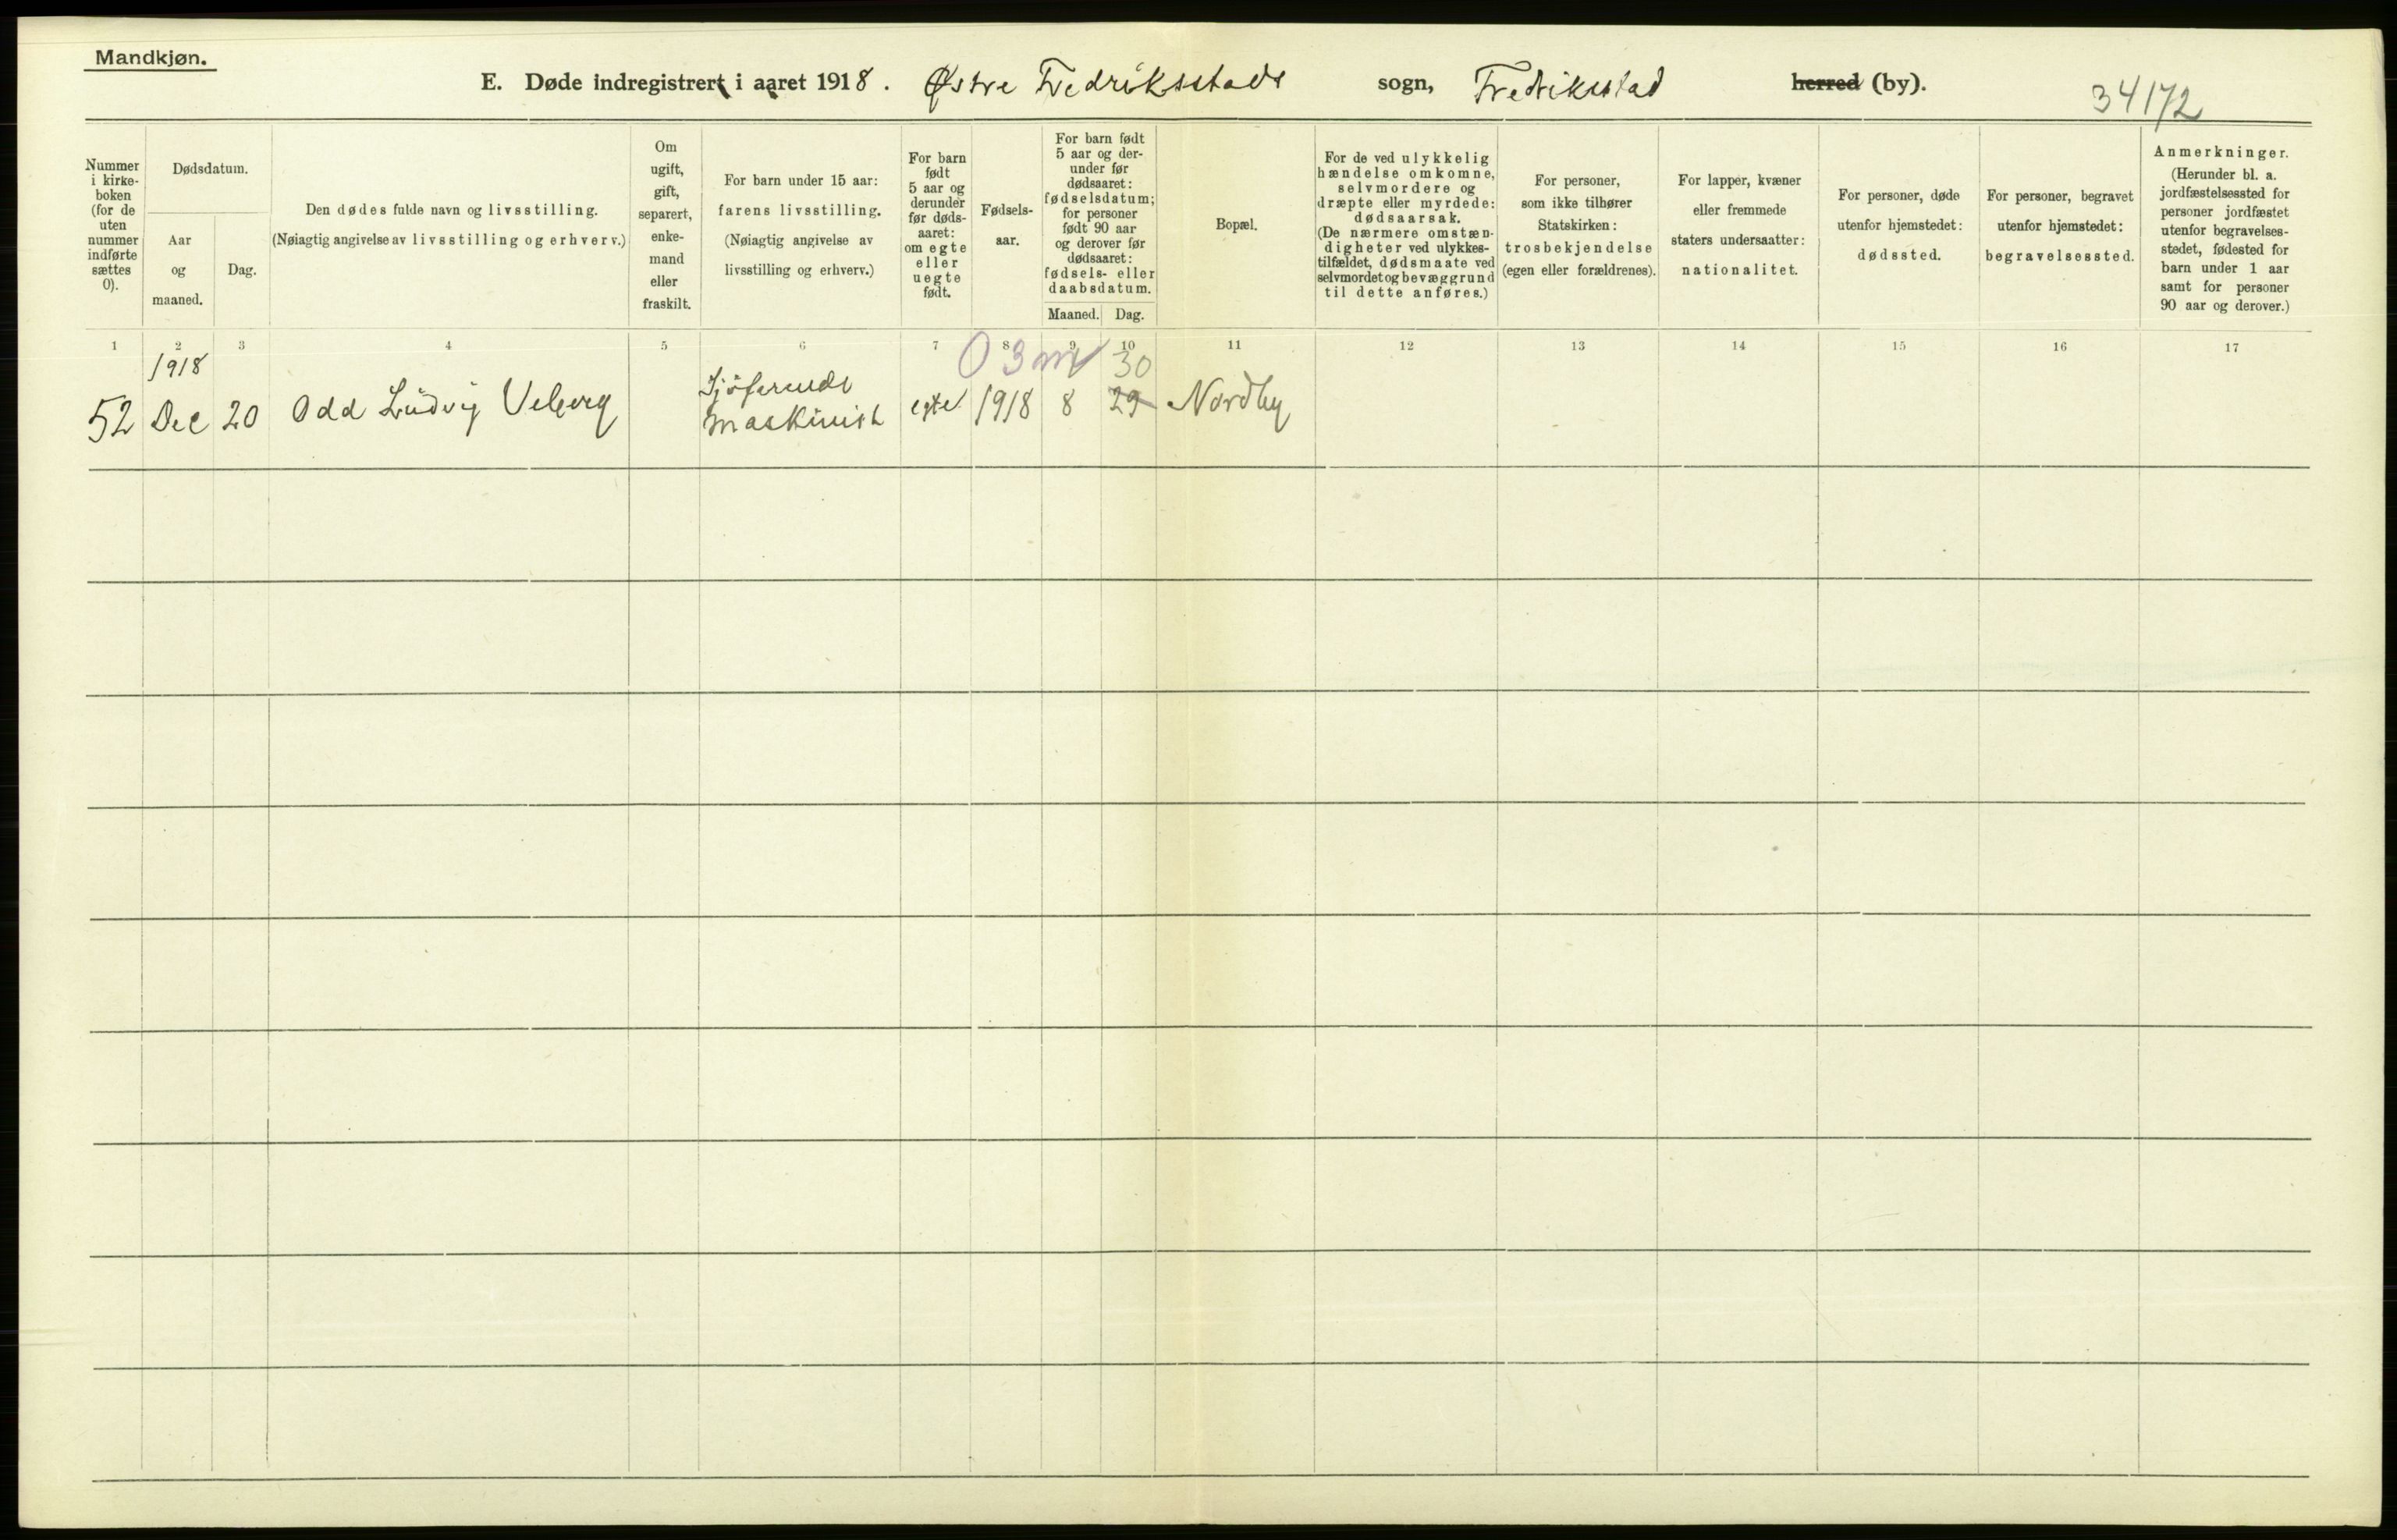 Mandkjøn.
E. Døde indregistrert i aaret 1918. Østre Fredriksstads sogn, Fredrikstad herred (by).
34172
Nummer
i kirke-
boken
(for de
uten
nummer
indførte
sættes
0).
Dødsdatum.
Aar
og
maaned.
Dag.
Den dødes fulde navn og livsstilling.
(Nøiagtig angivelse av livsstilling og erhverv.)
Om
ugift,
gift,
separert,
enke-
mand
eller
fraskilt.
For barn under 15 aar:
farens livsstilling.
(Nøiagtig angivelse av
livsstilling og erhverv.)
For barn
født
5 aar og
derunder
før døds-
aaret:
om egte
eller
uegte
født.
Fødsels-
aar.
For barn født
5 aar og der-
under før
dødsaaret:
fødselsdatum;
for personer
født 90 aar
og derover før
dødsaaret:
fødsels- eller
daabsdatum.
Maaned. Dag.
Bopæl.
For de ved ulykkelig
hændelse omkomne,
selvmordere og
dræpte eller myrdede:
dødsaarsak.
(De nærmere omstæn-
digheter ved ulykkes-
tilfældet, dødsmaate ved
selvmordet og bevæggrund
til dette anføres.)
For personer,
som ikke tilhører
Statskirken:
trosbekjendelse
(egen eller forældrenes).
For lapper, kvæner
eller fremmede
staters undersaatter:
nationalitet.
For personer, døde
utenfor hjemstedet:
dødssted.
For personer, begravet
utenfor hjemstedet:
begravelsessted.
Anmerkninger.
(Herunder bl. a.
jordfæstelsessted for
personer jordfæstet
utenfor begravelses-
stedet, fødested for
barn under 1 aar
samt for personer
90 aar og derover.)
1 2 3 4 5 6 7 8 9 10 11 12 13 14 15 16 17
1918 0 3 m 30
Sjöfarende
52 Dec 20 Odd Ludvig Veberg maskinist egte 1918 8 29 Nordby